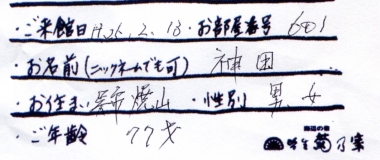 ・ご来館日 H26.2.13 ・お部屋番号 601
・お名前(ニックネームでも可) 神田
・お住まい 焼山 ・性別 男 女
・ご年齢 77才
海辺の宿